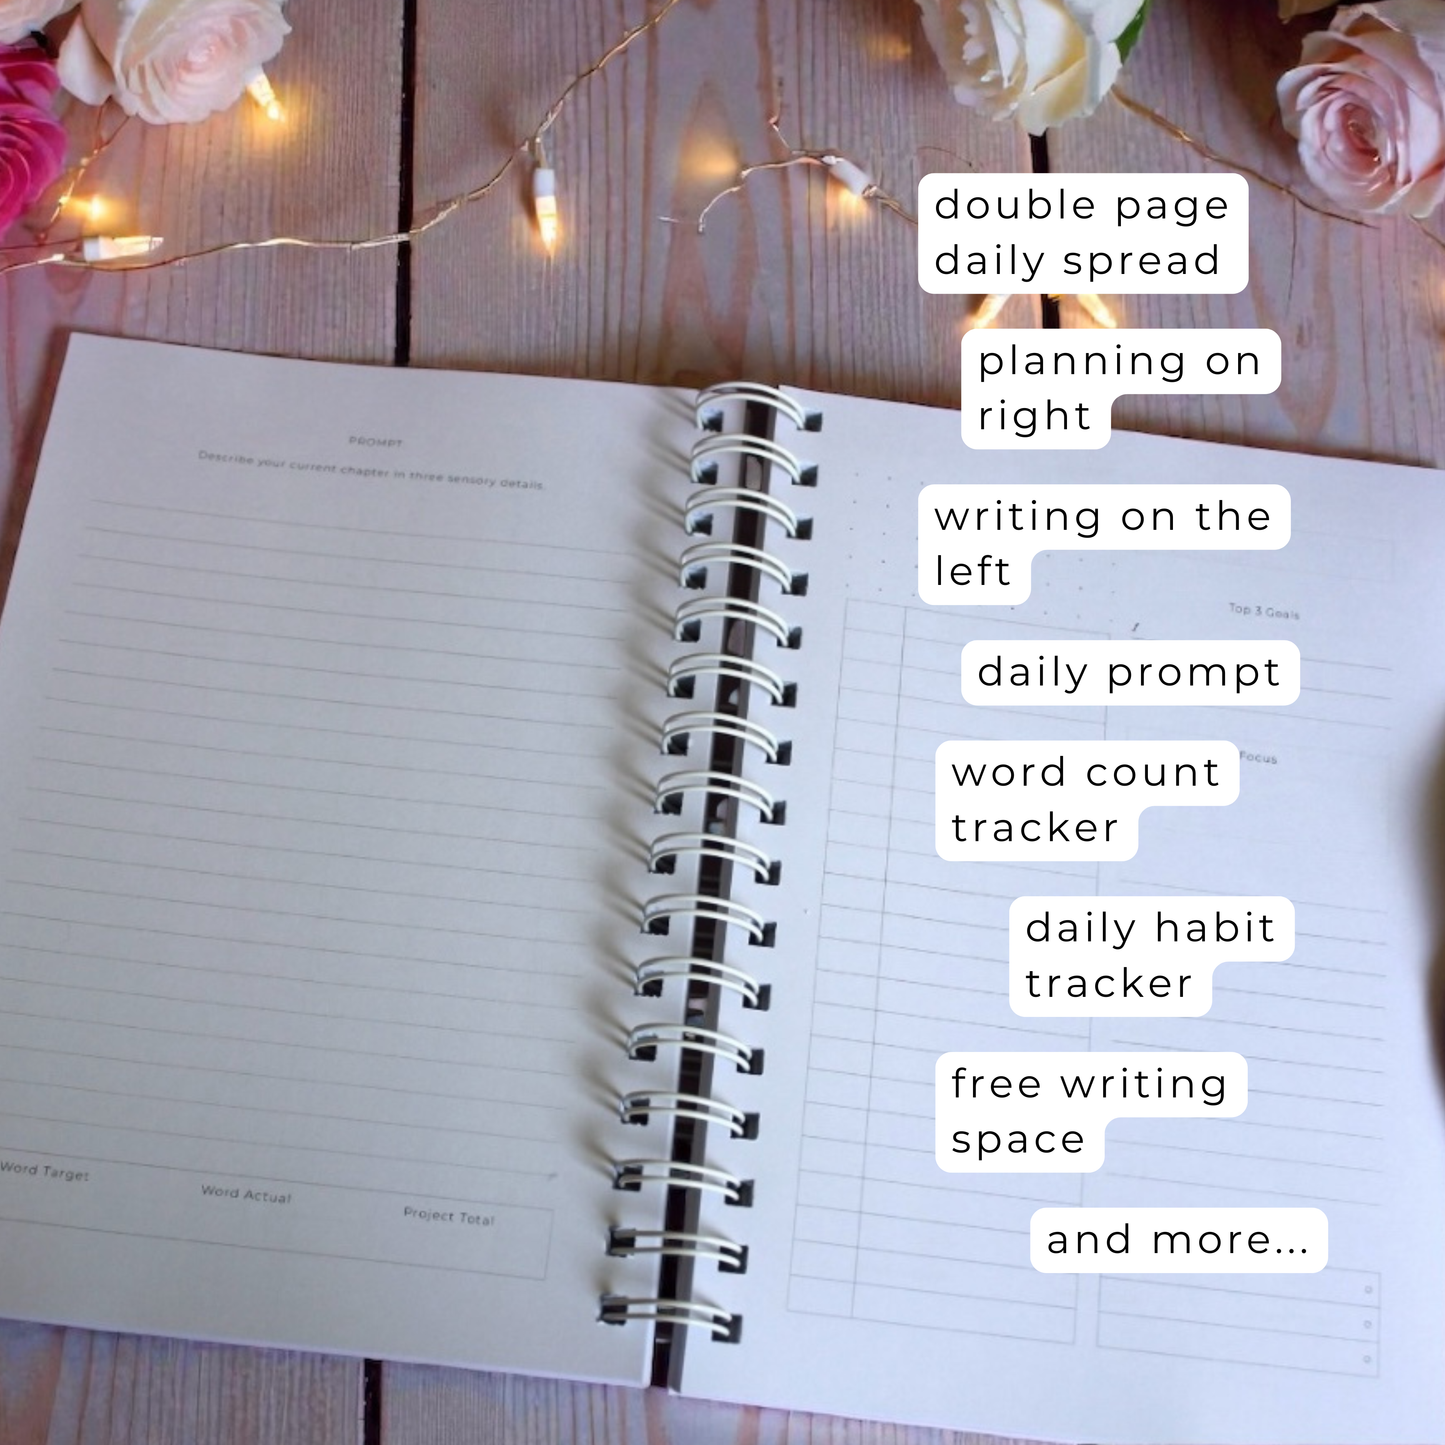 double page
daily spread
planning on
right
writing on the
left
daily prompt
word count
tracker
daily habit
tracker
free writing
space
and more...
PROMPT
Describe your current chapter in three sensory details.
Word Target
Word Actual
Project Total
Top 3 Goals
Focus